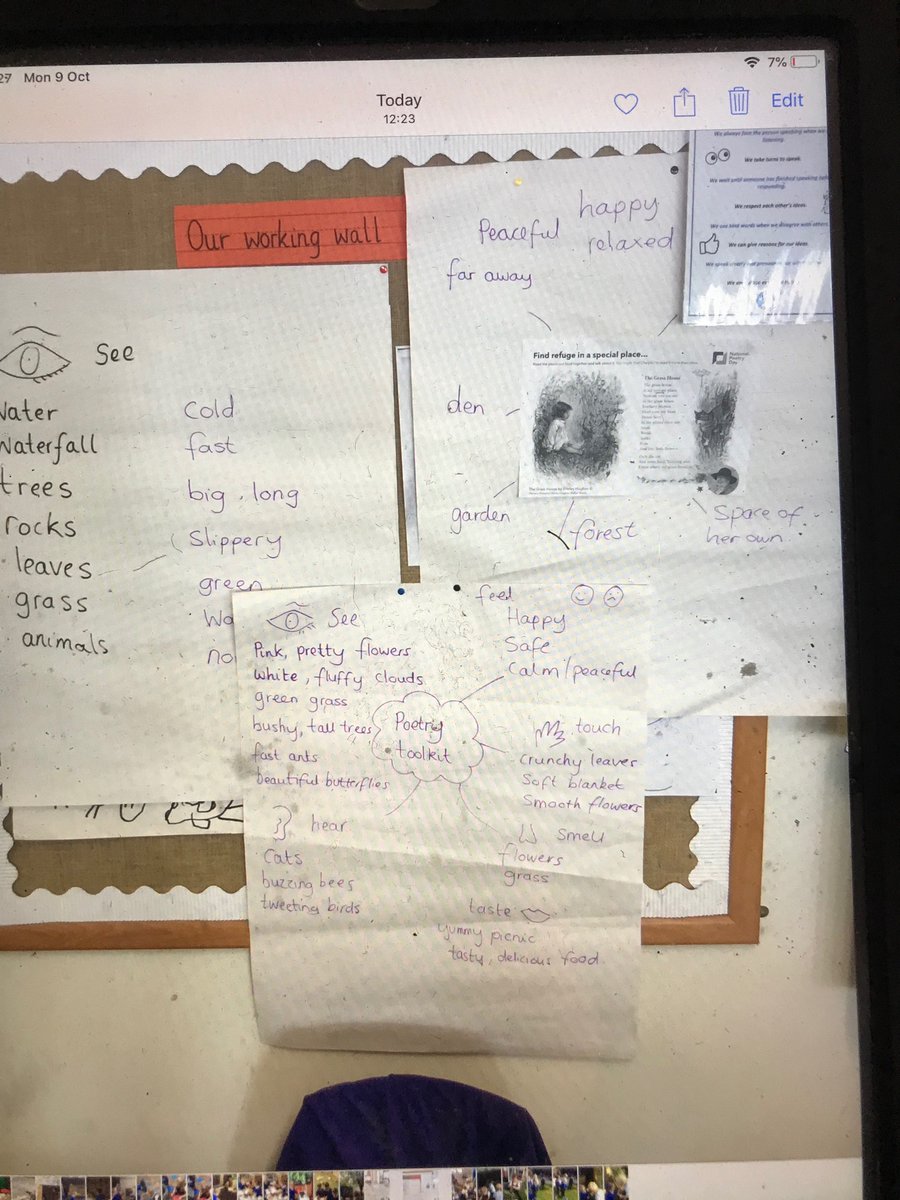 27 Mon 9 Oct
7%
Today
12:23
Edit
Our working wall
See
Water
cold
Waterfall
fast
trees
big, long
rocks
Slippery
leaves
green
grass
animals
Peaceful
happy
relaxed
far away
den
garden
forest
Space of
her own
Find refuge in a special place...
National
Poetry
Day
The Grass House
We take turns to speak.
We respect each other's ideas.
We use kind words when we disagree with others.
We can give reasons for our ideas.
See
Pink, pretty flowers
white, fluffy clouds
green grass
bushy, tall trees
fast ants
beautiful butterflies
Poetry
toolkit
feel
Happy
Safe
Calm/peaceful
touch
crunchy leaves
Soft blanket
Smooth flowers
hear
Cats
buzzing bees
tweeting birds
smell
flowers
grass
taste
yummy picnic
tasty, delicious food